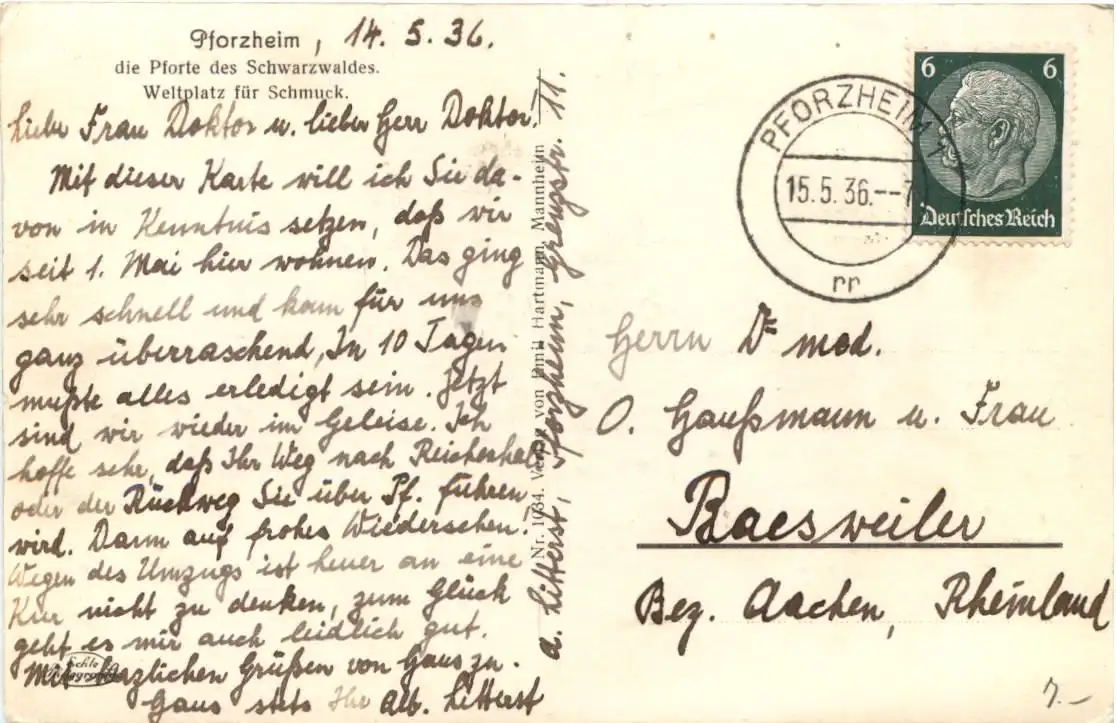 Pforzheim, 14. 5. 36.
die Pforte des Schwarzwaldes.
Weltplatz für Schmuck.
Liebe Frau Doktor u. lieber Herr Doktor!
Mit dieser Karte will ich Sie da-
von in Kenntnis setzen, daß wir
seit 1. Mai hier wohnen. Das ging
sehr schnell und kam für uns
ganz überraschend, In 10 Tagen
mußte alles erledigt sein. Jetzt
sind wir wieder im Geleise. Ich
hoffe sehr, daß Ihr Weg nach Reichenhall
oder der Rückweg Sie über Pf. führen
wird. Dann auf frohes Wiedersehen!
Wegen des Umzugs ist heuer an eine
Kur nicht zu denken, zum Glück
geht es mir auch leidlich gut.
Mit herzlichen Grüßen von Haus zu
Haus stets Ihr Alb. Litterst
a. Litterst, Pforzheim, Grenzstr. 11.
Nr. 1034. Verlag von Emil Hartmann, Mannheim
PFORZHEIM
15.5.36.--7
rr
6 6
Deutsches Reich
Herrn Dr med.
O. Haußmann u. Frau
Baesweiler
Bez. Aachen, Rheinland
7.-